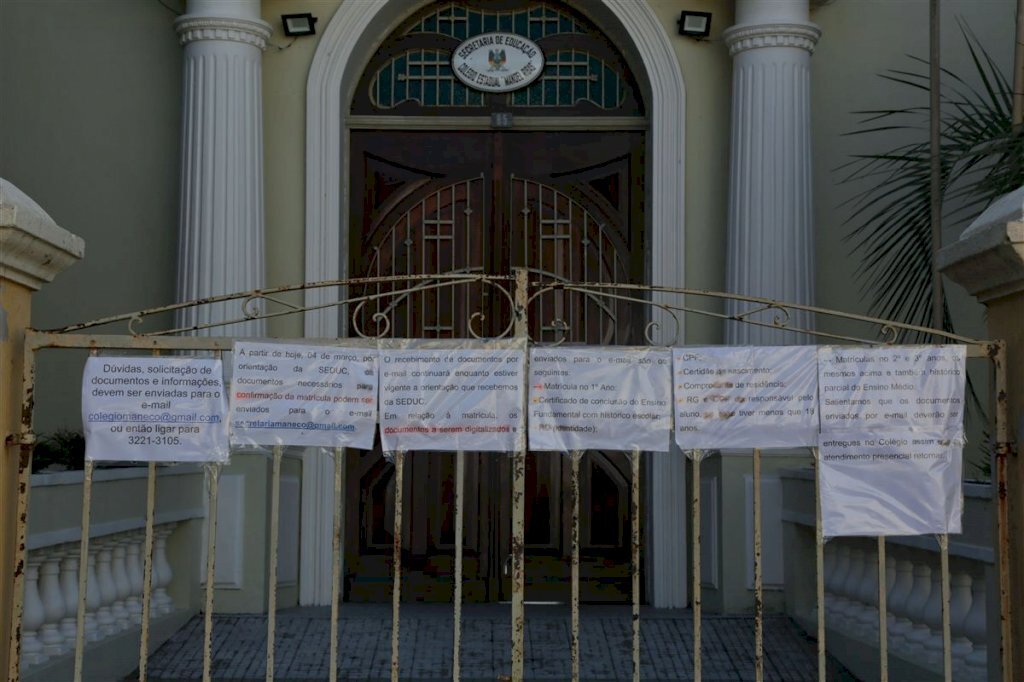 SECRETARIA DE EDUCAÇÃO
COLÉGIO ESTADUAL "MANOEL RIBAS"
Dúvidas, solicitação de
documentos e informações,
devem ser enviadas para o
e-mail
colegiomaneco@gmail.com,
ou então ligar para
3221-3105.
A partir de hoje, 04 de março, por
orientação da SEDUC, os
documentos necessários para
confirmação da matrícula podem ser
enviados para o e-mail
secretariamaneco@gmail.com
O recebimento de documentos por
e-mail continuará enquanto estiver
vigente a orientação que recebemos
da SEDUC.
Em relação à matrícula, os
documentos a serem digitalizados e
enviados para o e-mail são os
seguintes:
Matrícula no 1º Ano:
Certificado de conclusão do Ensino
Fundamental com histórico escolar;
RG (identidade);
CPF;
Certidão de nascimento;
Comprovante de residência;
RG e CPF do responsável pelo
aluno, se este tiver menos que 18
anos.
Matrículas no 2º e 3º anos, os
mesmos acima e também histórico
parcial do Ensino Médio.
Salientamos que os documentos
enviados por e-mail deverão ser
entregues no Colégio assim que
atendimento presencial retornar.